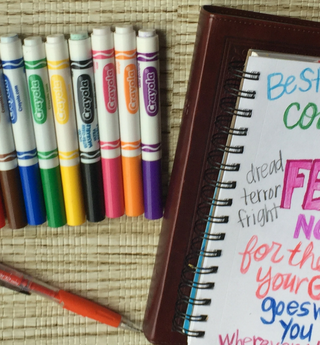 Crayola
Crayola
Crayola
Crayola
Crayola
Crayola
Best
co
dread
terror
fright
FE
NO
for the
your G
goes w
you
wherever